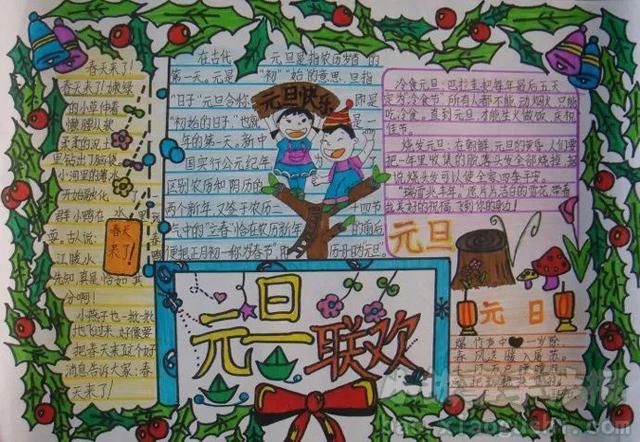 春天来了!
春天来了!嫩绿
的小草伸着
懒腰从软
柔柔的泥土
里钻出了脑袋
小河里的薄冰
开始融化
群小鸭在水里
耍。古人说:
江暖水
先知,真是恰如其
分啊!
小燕子也一批批
地飞过来,好像要
把春天来了这个好
消息告诉大家:春
天来了!
春天
来了!
在古代 元旦是指农历岁首的
第一天。元是 “初”“始”的意思,旦指
“日子”元旦合称 即是
“初始的日子”也就
一年的第一天。新中
国实行公元纪年
区别农历和阳历的
两个新年,又鉴于农历二十四节
气中的“立春”恰在农历新年的前后
便把正月初一称为“春节” 历1月1称元旦。
元旦快乐
冷食元旦:巴拉圭把每年最后五天
定为冷食节,所有人都不能动烟火,只能
吃冷食。直到元旦才能生火做饭,庆和
佳节。
烧发元旦:在朝鲜,元旦的黄昏,人们要
把一年里收集的脱落头发全部烧掉,据
说,烧头发可以使全家四季平安。
元旦
元旦
爆竹声中一岁除
春风送暖入屠苏。
元旦
联欢